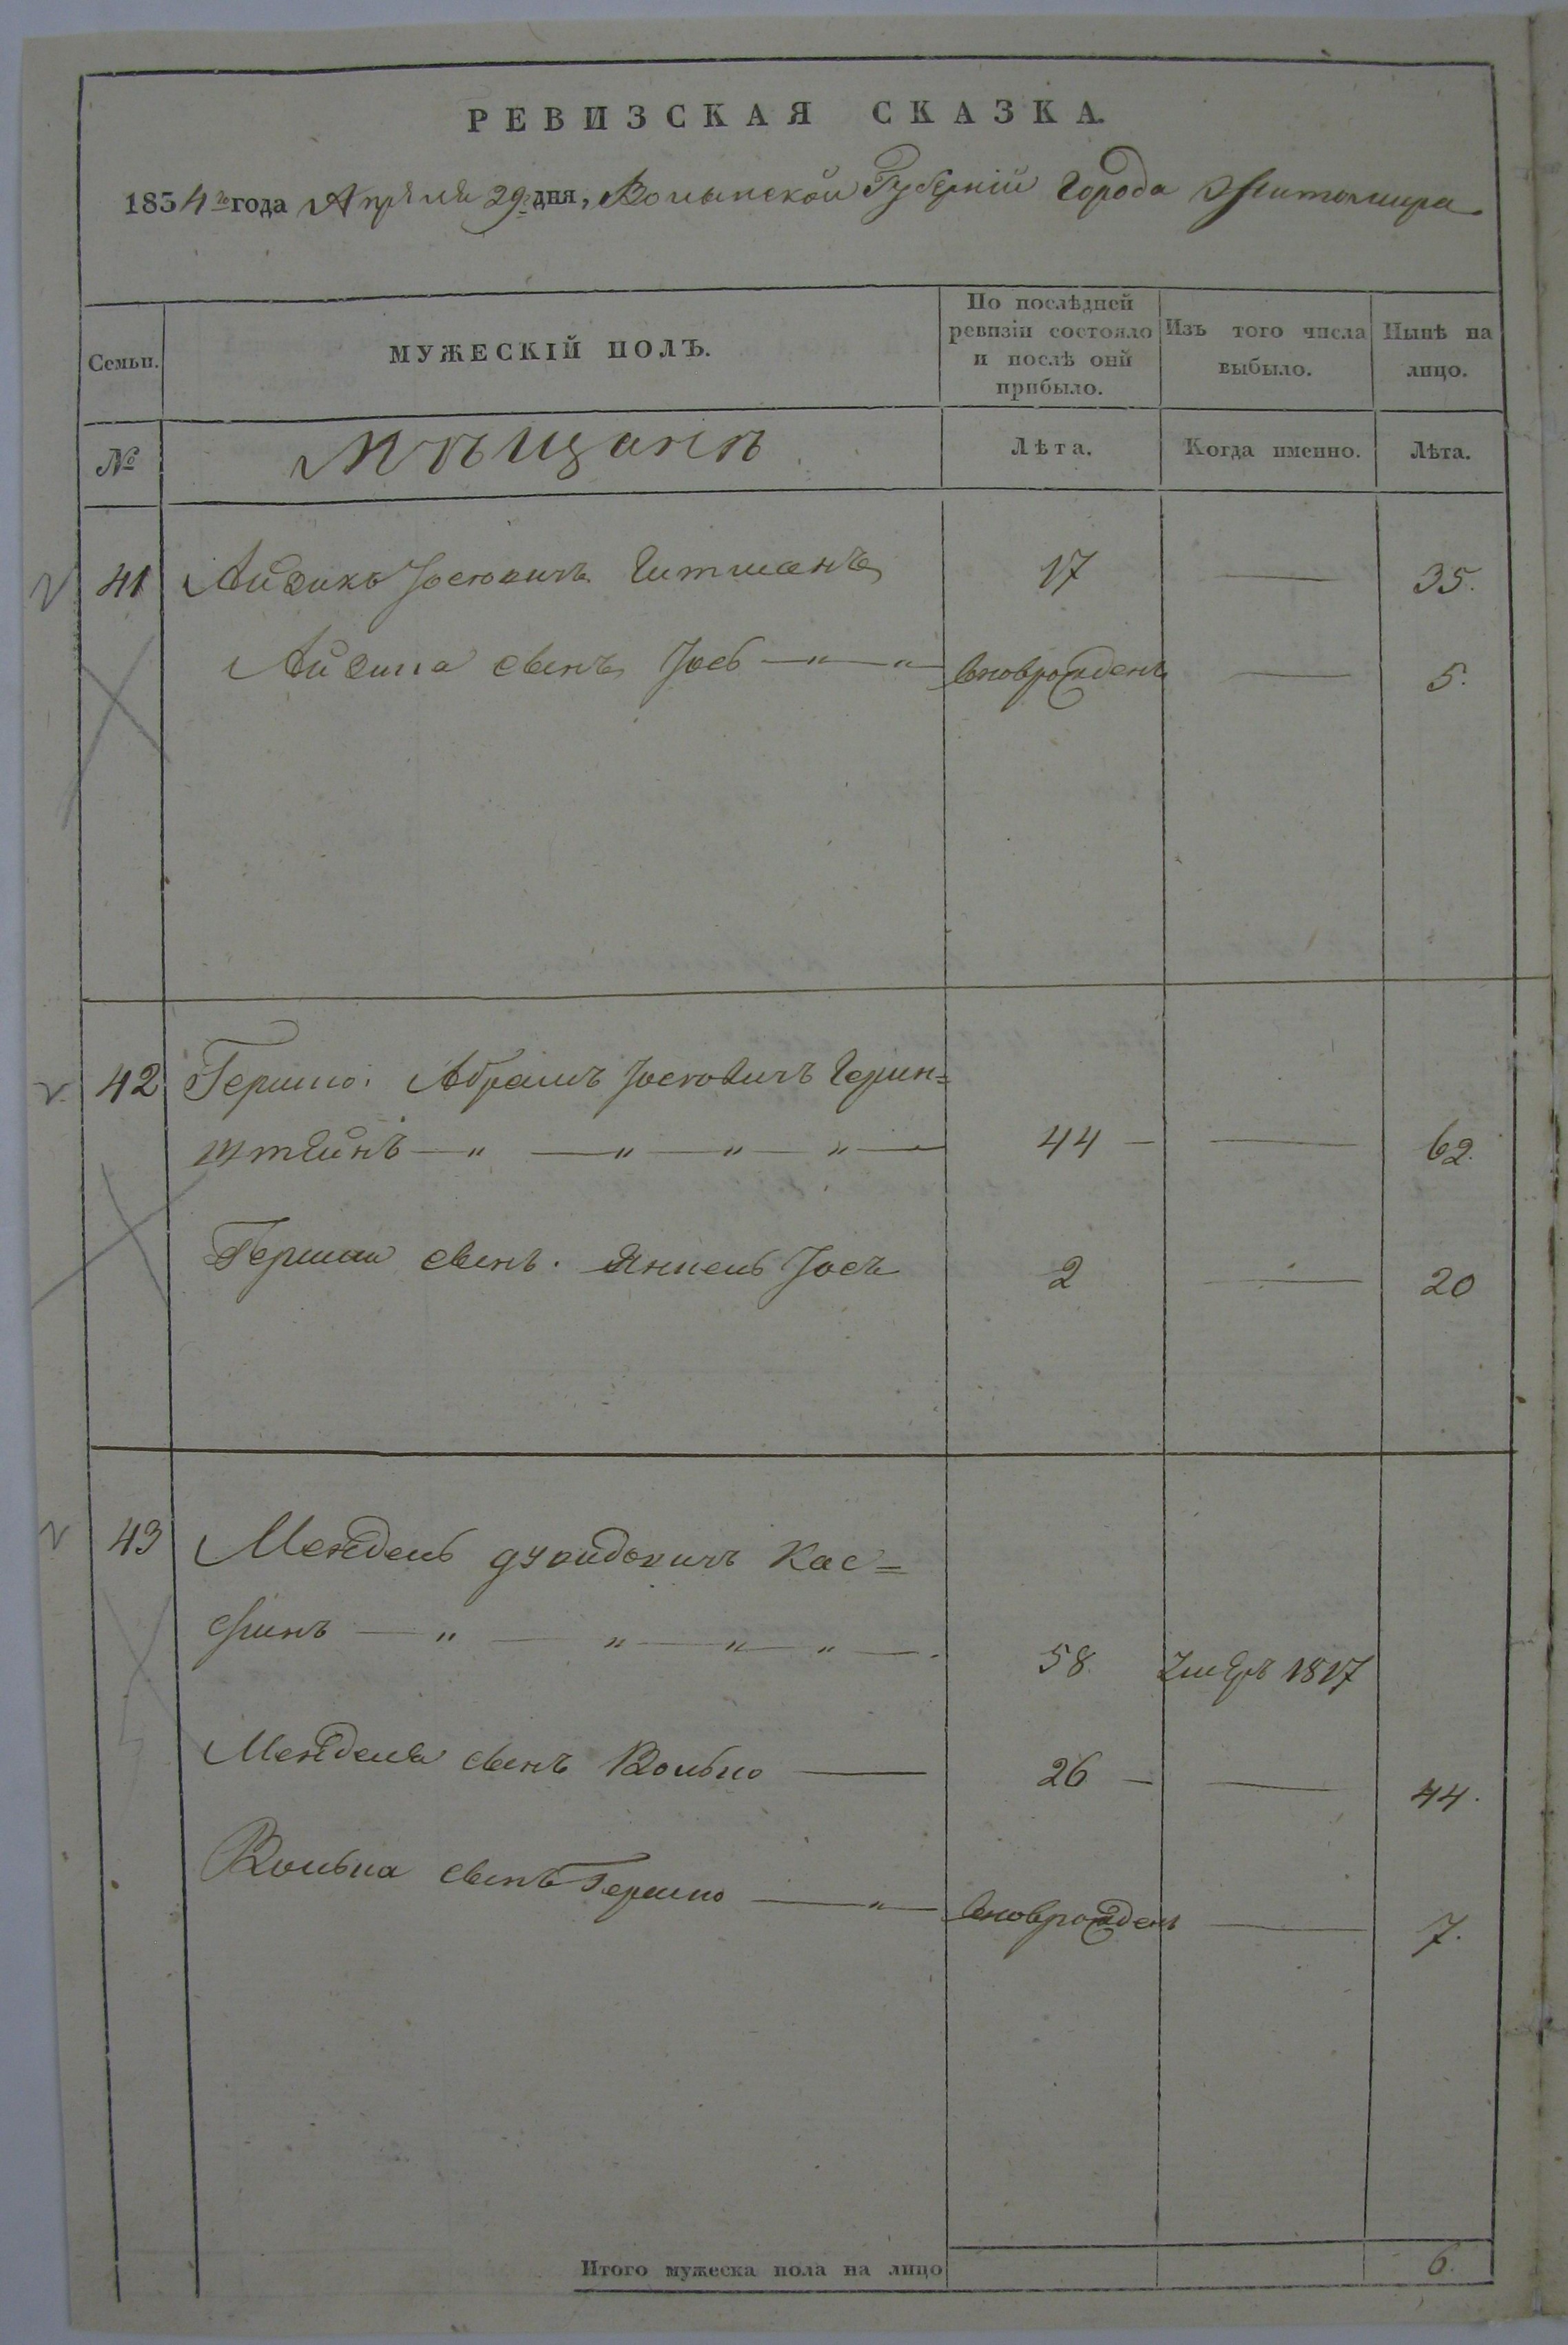 РЕВИЗСКАЯ СКАЗКА.
1834го года Апреля 29 дня, Волынской Губернїи Города Житомира
Семьи.
МУЖЕСКІЙ ПОЛЪ.
По послѣдней ревизіи состояло и послѣ оній прибыло.
Изъ того числа выбыло.
Нынѣ на лицо.
№
Мѣщанѣ
Лѣта.
Когда именно.
Лѣта.
41 Айзикъ Іосіовичъ Гитманъ 17 — 35.
Айзика сынъ Іось — " — " вноврожденъ — 5.
42 Гершко Абрамъ Іосіовичъ Герин=
штейнъ — " — " — " — " — 44 — — 62.
Гершка сынъ. Янкель Іось 2 — 20
43 Мендель Дувидовичъ Кас=
 — " — " — " — " — . 58. Умеръ 1817
Менделя сынъ Волько — 26 — — 44.
Волька сынъ Гершко — " — вноврожденъ — 7.
Итого мужеска пола на лицо 6.